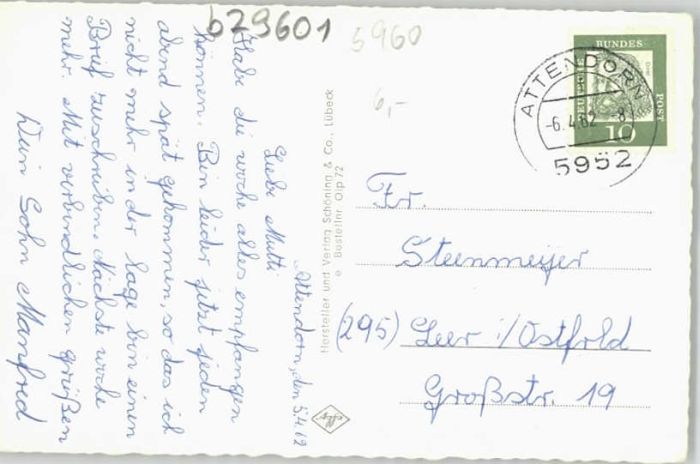 b29601
5960
6,-
DEUTSCHE
BUNDES
POST
10
ATTENDORN
-6.4.62 -8
5952
Attendorn, den 5.4.62
Liebe Mutti.
Habe die woche alles empfangen
können. Bin leider jetzt jeden
abend spät gekommen, so das ich
nicht mehr in der lage bin einen
Brief zuschreiben. Nächste woche
mehr. Mit verbindlichen grüßen
Dein Sohn Manfred
Hersteller und Verlag Schöning & Co., Lübeck
Bestellnr. Olp 72
Fr.
Steenmeijer
(295) Leer i/Ostfrld
Großstr. 19